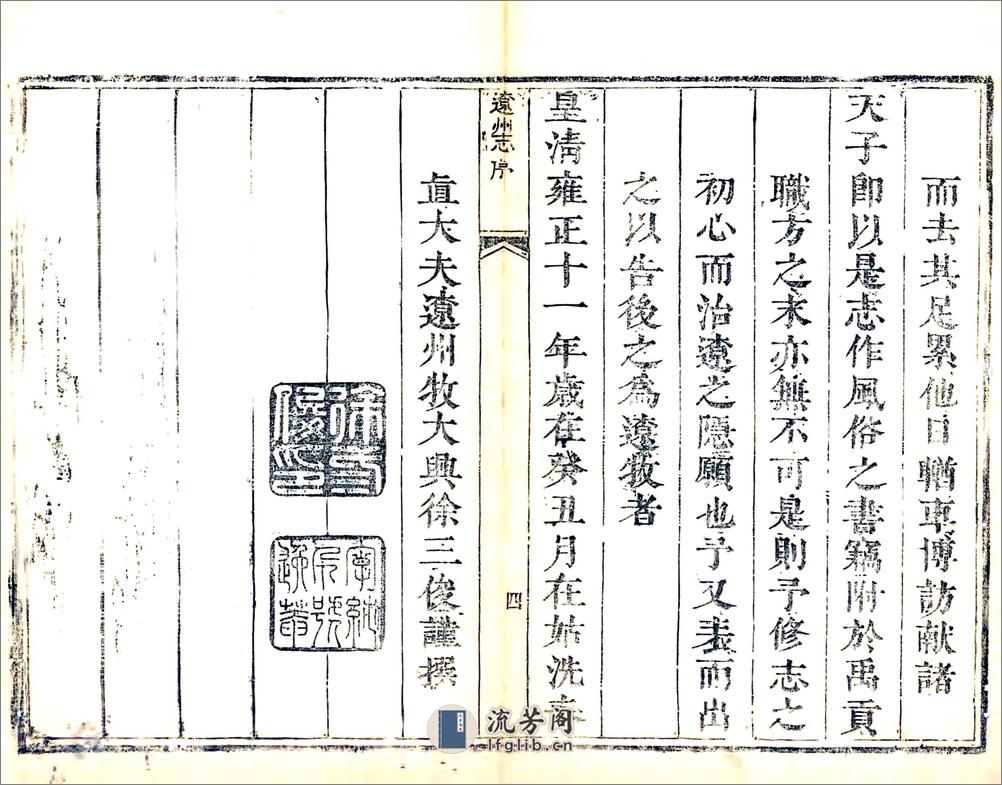 而去其足累他日輶車博訪献諸
天子卽以是志作風俗之書竊附於禹貢
職方之末亦無不可是則予修志之
初心而治遼之隱願也予又表而出
之以告後之為遼牧者
皇淸雍正十一年歲在癸丑月在姑洗奉
遼州志 序
四
直大夫遼州牧大興徐三俊謹撰
徐三俊印
流芳阁
lfglib.cn